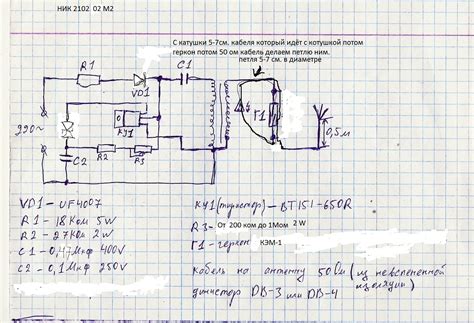 НИК 2102 02 М2
С катушки 5-7см, кабеля который идёт с котушкой потом
геркон потом 50 ом кабель делаем петлю ним.
петля 5-7 см. в диаметре
R1
VD1
C1
КУ1
Г1
0,5м
220~
C2
R2
R3
VD1 - UF4007
R1 - 18 Ком 5w
R2 - 27 Ком 2w
C1 - 0,47 Мкф 400V
C2 - 0,1 Мкф 250V
КУ1 (тиристор) - BT151-650R
R3- От 200 ком до 1Мом 2 W
Г1 - геркон КЭМ-1
кабель на антенну 50 Ом (из невспененной изоляции)
динистор DB-3 или DB-4